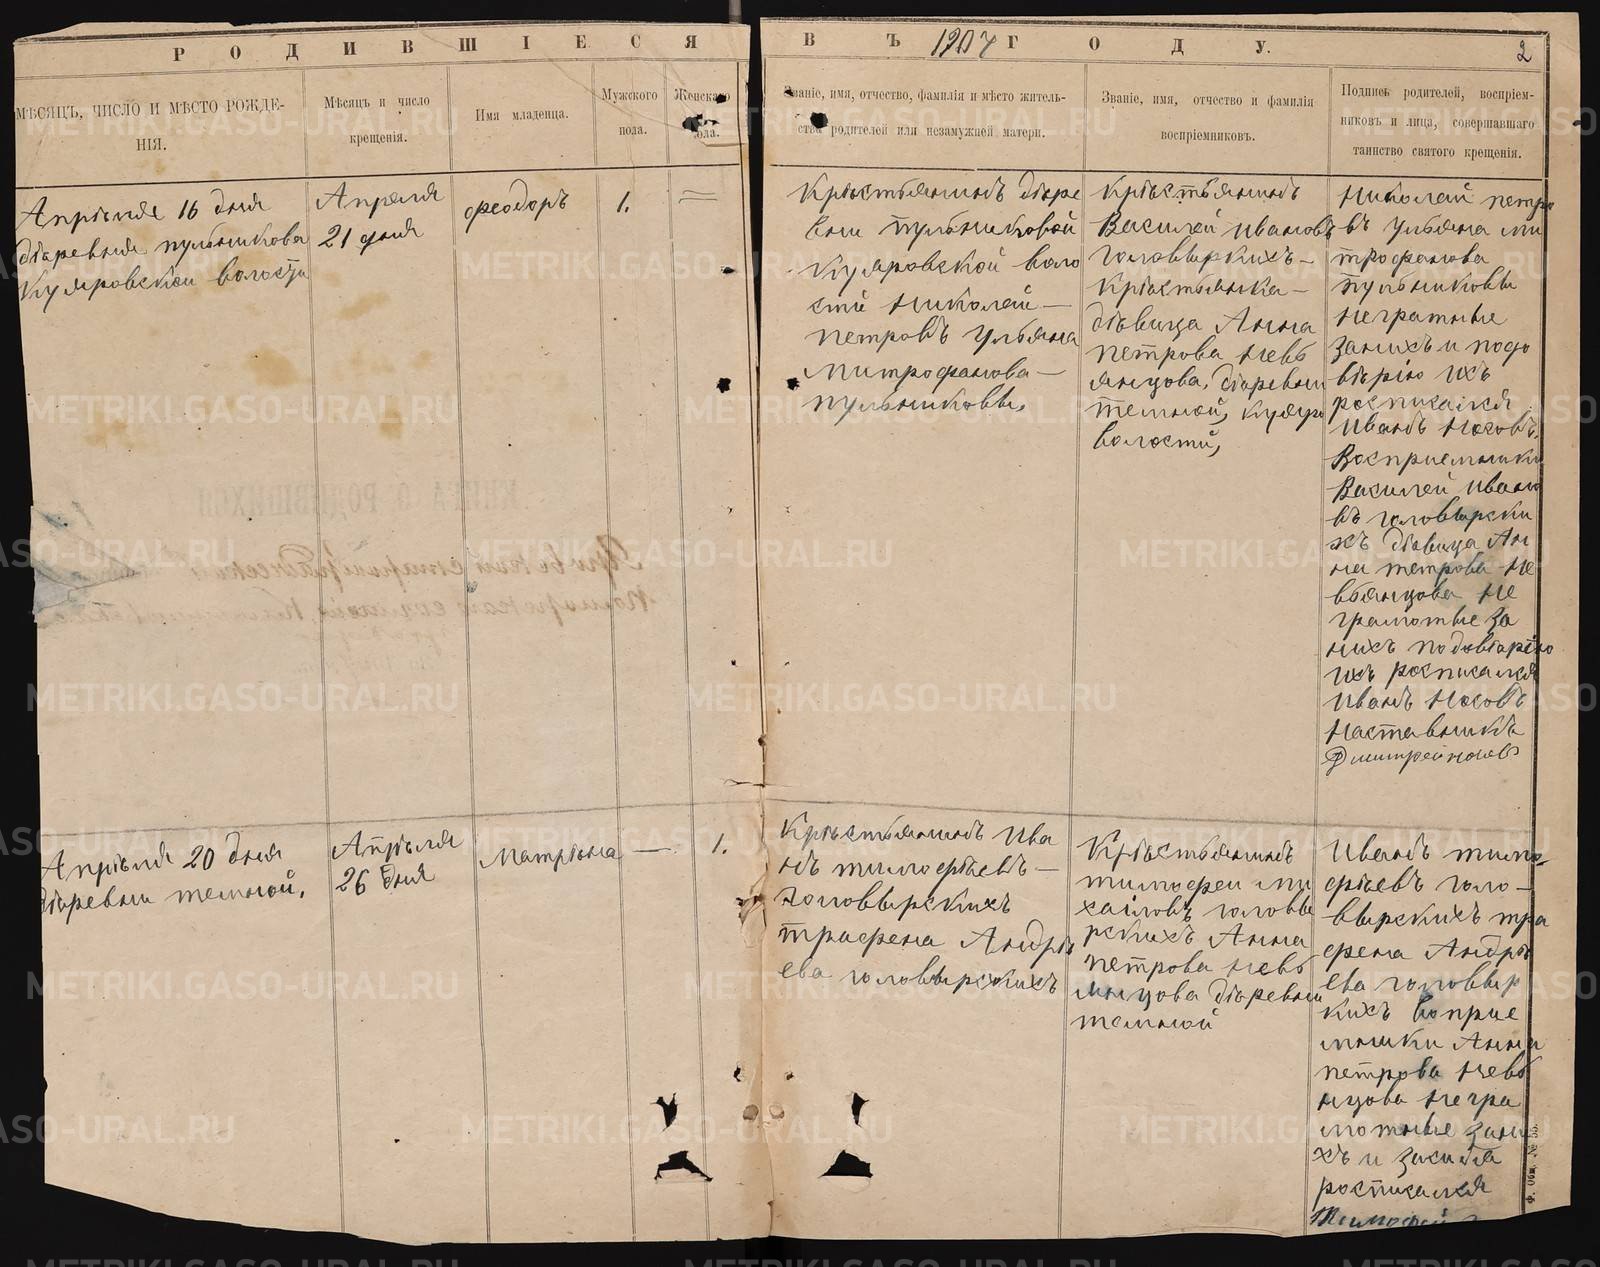 РОДИВШІЕСЯ
ВЪ 1907 ГОДУ.
2
МѢСЯЦЪ, ЧИСЛО И МѢСТО РОЖДЕ-
НІЯ.
Мѣсяцъ и число
крещенія.
Имя младенца.
Мужского
пола.
Женскаго
пола.
Званіе, имя, отчество, фамилія и мѣсто житель-
ства родителей или незамужней матери.
Званіе, имя, отчество и фамилія
воспріемниковъ.
Подпись родителей, воспріем-
никовъ и лица, совершавшаго
таинство святого крещенія.
Апрѣля 16 дня
дѣревня пульникова
куяровской волости
Апреля
21 дня
феодоръ
1.
Крѣстьянинъ дѣре
вни пульниковой
куяровской воло
сти николай —
петровъ ульяна
митрофанова —
пульниковы,
Крѣстьянинъ
Василей ивановъ
головырскихъ —
крѣстьянка —
дѣвица Анна
петрова невь
янцова, дѣревни
темной, куяро
волости,
николай петро
въ ульяна ми
трофанова
пульниковы
негратные
занихъ и подо
вѣрію ихъ
росписался
иванъ носовъ.
Восприемники
Василей ивано
въ головырски
хъ дѣвица Ан
на петрова не
вьянцова не
грамотые за
нихъ подовѣрію
ихъ росписался
иванъ носовъ
наставникъ
Дмитрей носов
Апрѣля 20 дня
дѣревни темной.
Апрѣля
26 дня
матрѣна
—
1.
Крѣстьянинъ ива
нъ тимофѣевъ —
головырскихъ
прасфена Андрѣ
ева головырскихъ
Крѣстьянинъ
тимофеи ми
хаіловъ головы
рскихъ Анна
петрова невь
янцова дѣревни
темной
иванъ тимо-
фѣевъ голо-
вырскихъ пра
фена Андрѣ
ева головыр
кихъ воприе
мники Анна
петрова невь
нцова негра
мотные зани
хъ и засибя
росписался
Тимофей
Ф. Общ. № 35.
КНИГА О РОДИВШИХСЯ
METRIKI.GASO-URAL.RU